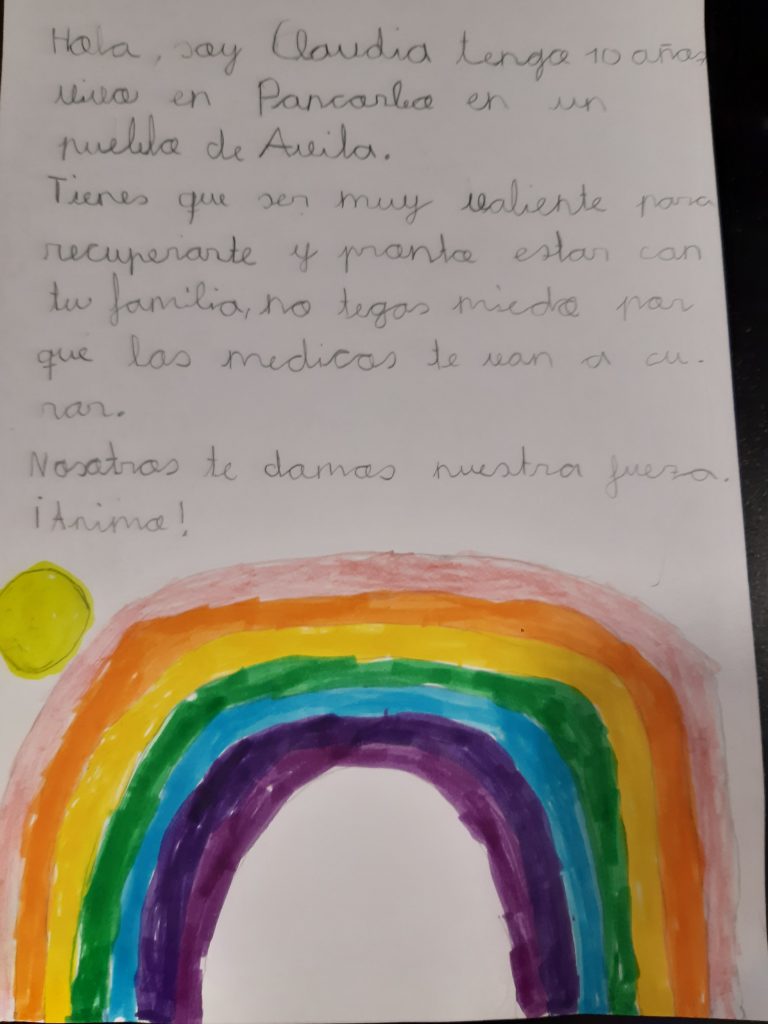 Hola, soy Claudia tengo 10 años
vivo en Pancorbo en un
pueblo de Avila.
Tienes que ser muy valiente para
recuperarte y pronto estar con
tu familia, no tegas miedo por
que los medicos te van a cu-
rar.
Nosotros te damos nuestra fueza.
¡Animo!